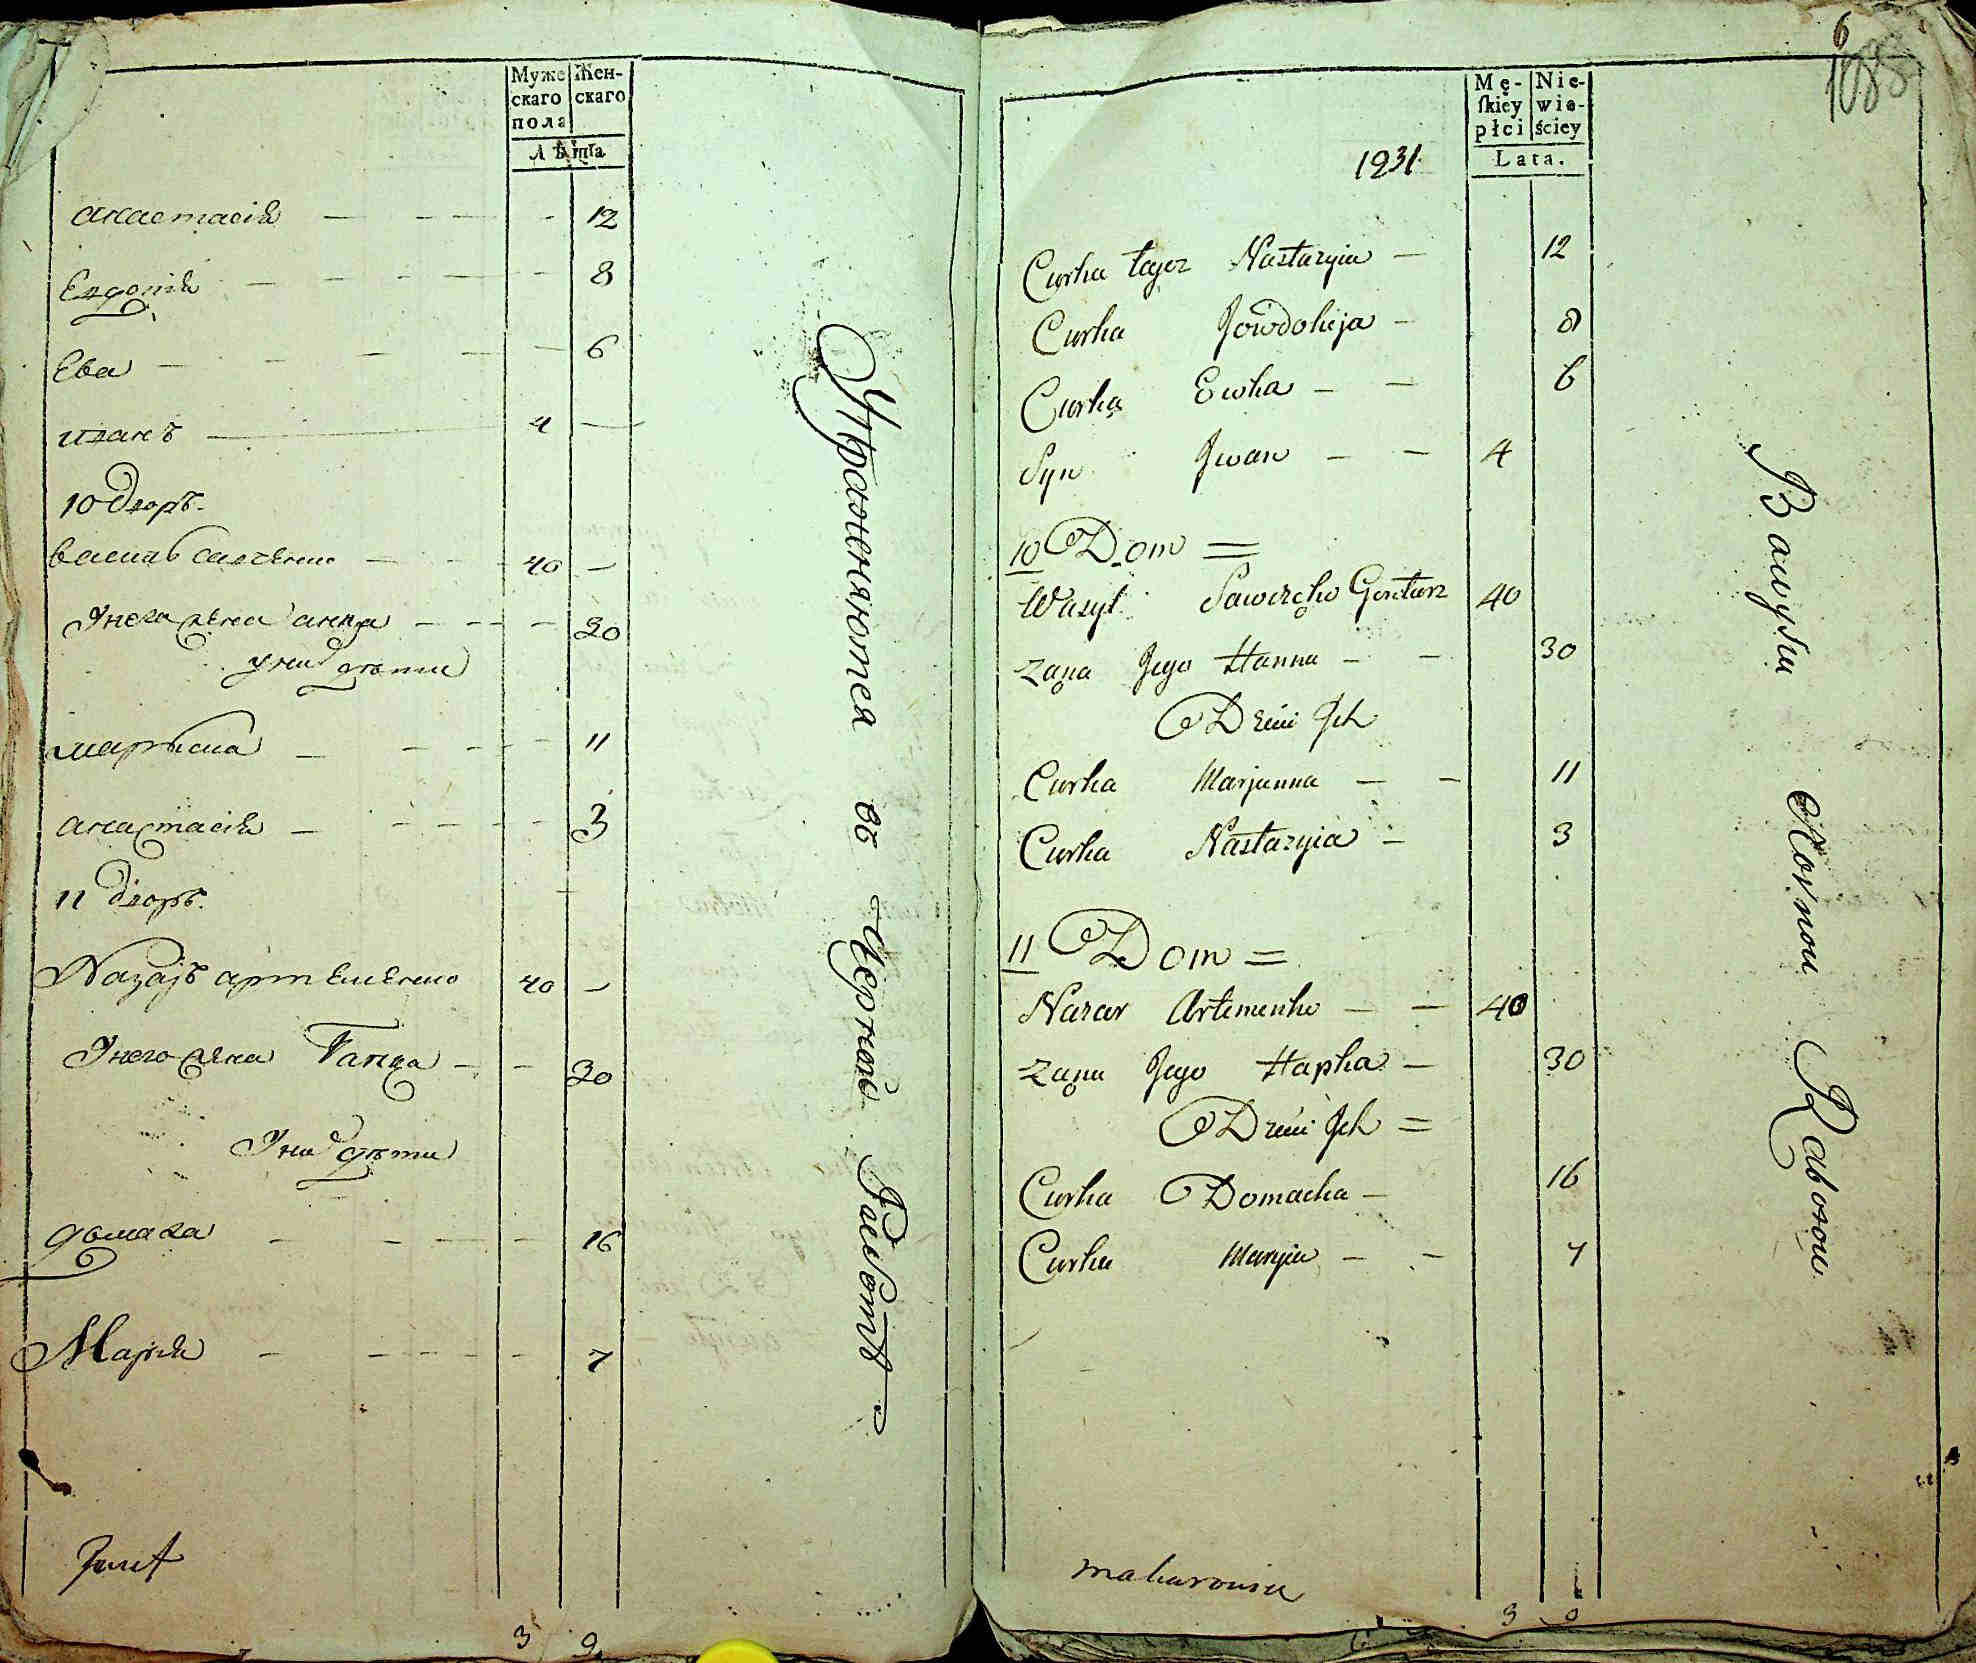 Муже
скаго
пола
Жен-
скаго
Лѣта
анастасія — — — — 12
Евдокія — — — — 8
Ева — — — — 6
иванъ — 4 —
10 дворъ.
василь савченко — — 40 —
У него жена анна — — — 30
у них дѣти
марьяна — — — — 11
анастасія — — — — 3
11 дворъ.
Назаръ артеменко 40 —
У него жена Гапка — — 30
У них дѣти
домаха — — — — 16
Марія — — — — 7
3 9
Упражняются въ Черной Работѣ
6
1088
Mę-
ſkiey
płci
Nie-
wie-
ściey
Lata.
1231
Curka tegoz Nastazyia — 12
Curka Jowdokija — 8
Curka Ewka — — 6
Syn Jwan — — 4
10 Dom =
Wasyl Sawczęko Gontarz 40
Zona Jego Hanna — — 30
Dzieci Jch
Curka Marjanna — — 11
Curka Nastazyia — 3
11 Dom =
Nazar Artemenko — — 40
Zona Jego Hapka — 30
Dzieci Jch =
Curka Domacha — 16
Curka Maryia — — 7
makarowicz
3 9
Bawyſie Czornou Raboτou